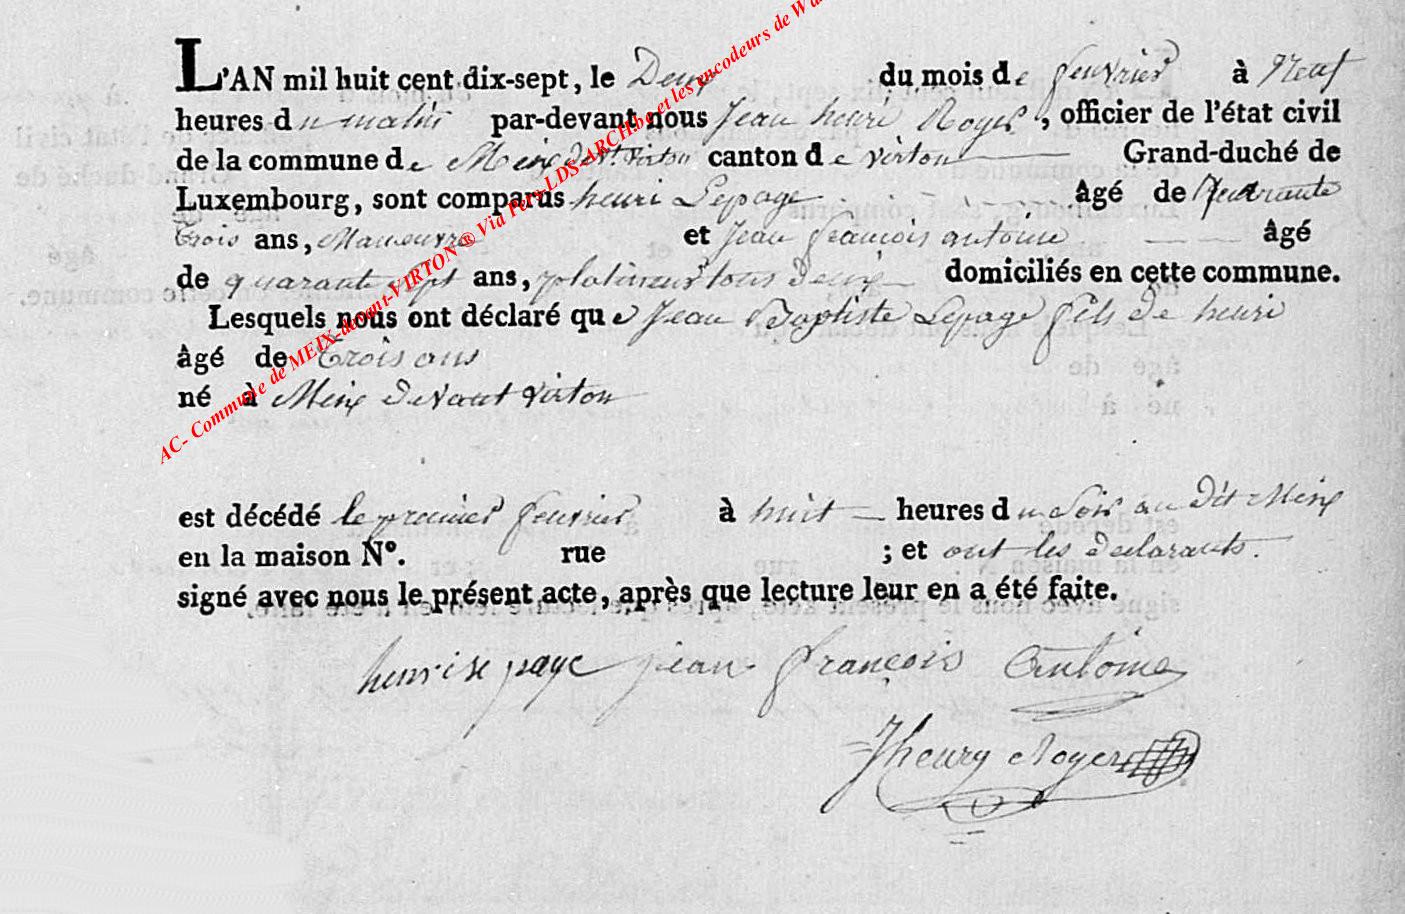 L'AN mil huit cent dix-sept, le Deux du mois de fevrier à Neuf
heures du matin par-devant nous Jean henri Royer, officier de l'état civil
de la commune de Meix devt. virton canton de virton Grand-duché de
Luxembourg, sont comparus henri Lepage âgé de quarante
trois ans, Manoeuvre et Jean françois antoine âgé
de quarant sept ans, platineur tous deux domiciliés en cette commune.
Lesquels nous ont déclaré que Jean Baptiste Lepage fils de henri
âgé de trois ans
né à Meix devant virton
est décédé le premier fevrier à huit heures du soir au dit Meix
en la maison N°. rue ; et ont les declarants.
signé avec nous le présent acte, après que lecture leur en a été faite.
henri le page jean françois Antoine
Jhenry Royer
AC- Commune de MEIX-devant-VIRTON ® Via Pers-LDS-ARCH.be et les encodeurs de